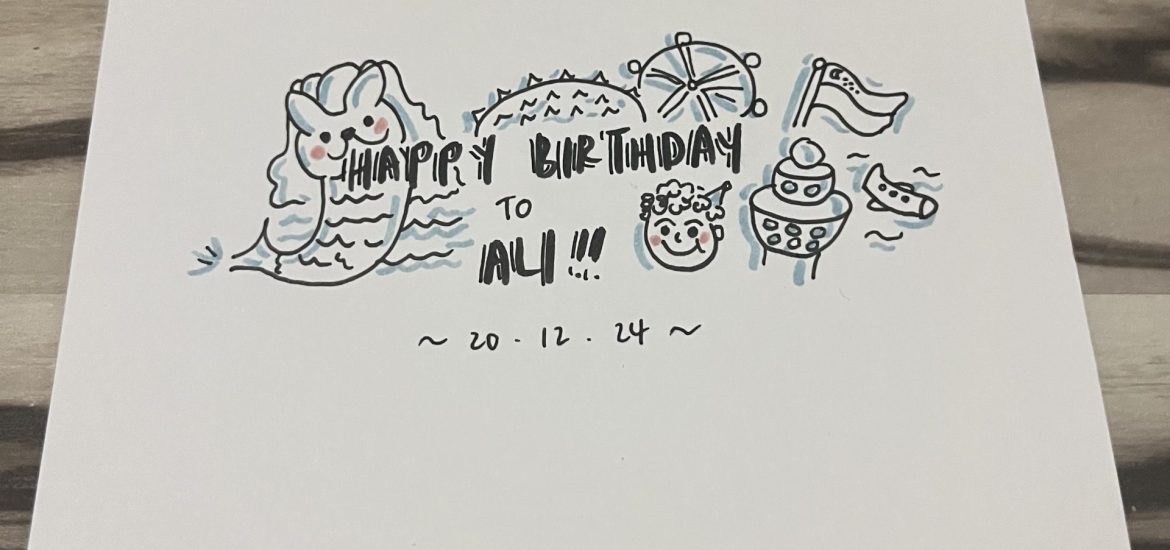 HAPPY BIRTHDAY
TO
ALI !!!
~ 20 . 12 . 24 ~